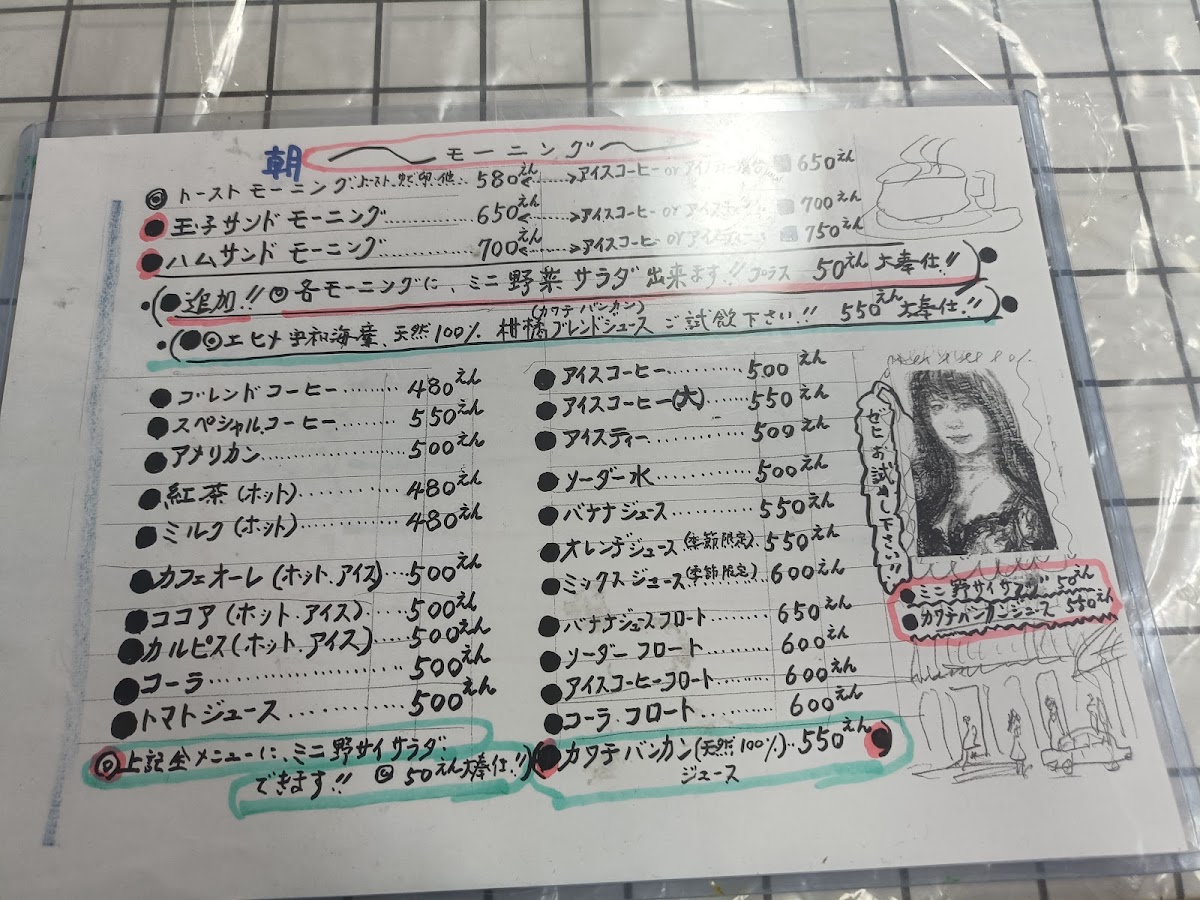 朝 モーニング
◎トーストモーニング トースト、ゆで卵、他… 580えん ‹……›アイスコーヒー or アイスティー 650えん
●玉子サンドモーニング………… 650えん ‹……›アイスコーヒー or アイスティー 700えん
●ハムサンドモーニング………… 700えん ‹……›アイスコーヒー or アイスティー 750えん
(●追加!! ◎各モーニングに、ミニ野菜サラダ出来ます!! プラス 50えん大奉仕!!)●
(カワテバンカン)
(●◎エヒメ宇和海産、天然100% 柑橘ブレンドジュースご試飲下さい!! 550えん大奉仕!!)●
●ブレンドコーヒー……… 480えん
●スペシャルコーヒー…… 550えん
●アメリカン……………… 500えん
●紅茶(ホット)………… 480えん
●ミルク(ホット)……… 480えん
●カフェオーレ(ホット.アイス)… 500えん
●ココア(ホット.アイス)…… 500えん
●カルピス(ホット.アイス)… 500えん
●コーラ…………………… 500えん
●トマトジュース………… 500えん
◎上記全メニューに、ミニ野サイサラダ
できます!! ◎50えん大奉仕!!)
●アイスコーヒー……… 500えん
●アイスコーヒー(大)…… 550えん
●アイスティー………… 500えん
●ソーダー水………… 500えん
●バナナジュース……… 550えん
●オレンヂジュース(季節限定) 550えん
●ミックスジュース(季節限定) 600えん
●バナナジュースフロート…… 650えん
●ソーダーフロート……… 600えん
●アイスコーヒーフロート…… 600えん
●コーラ.フロート……… 600えん
(●カワテバンカン(天然100%)‥550えん●)
ジュース
ゼヒお試し下さい!!
●ミニ野サイサラダ 50えん
●カワテバンカンジュース 550えん